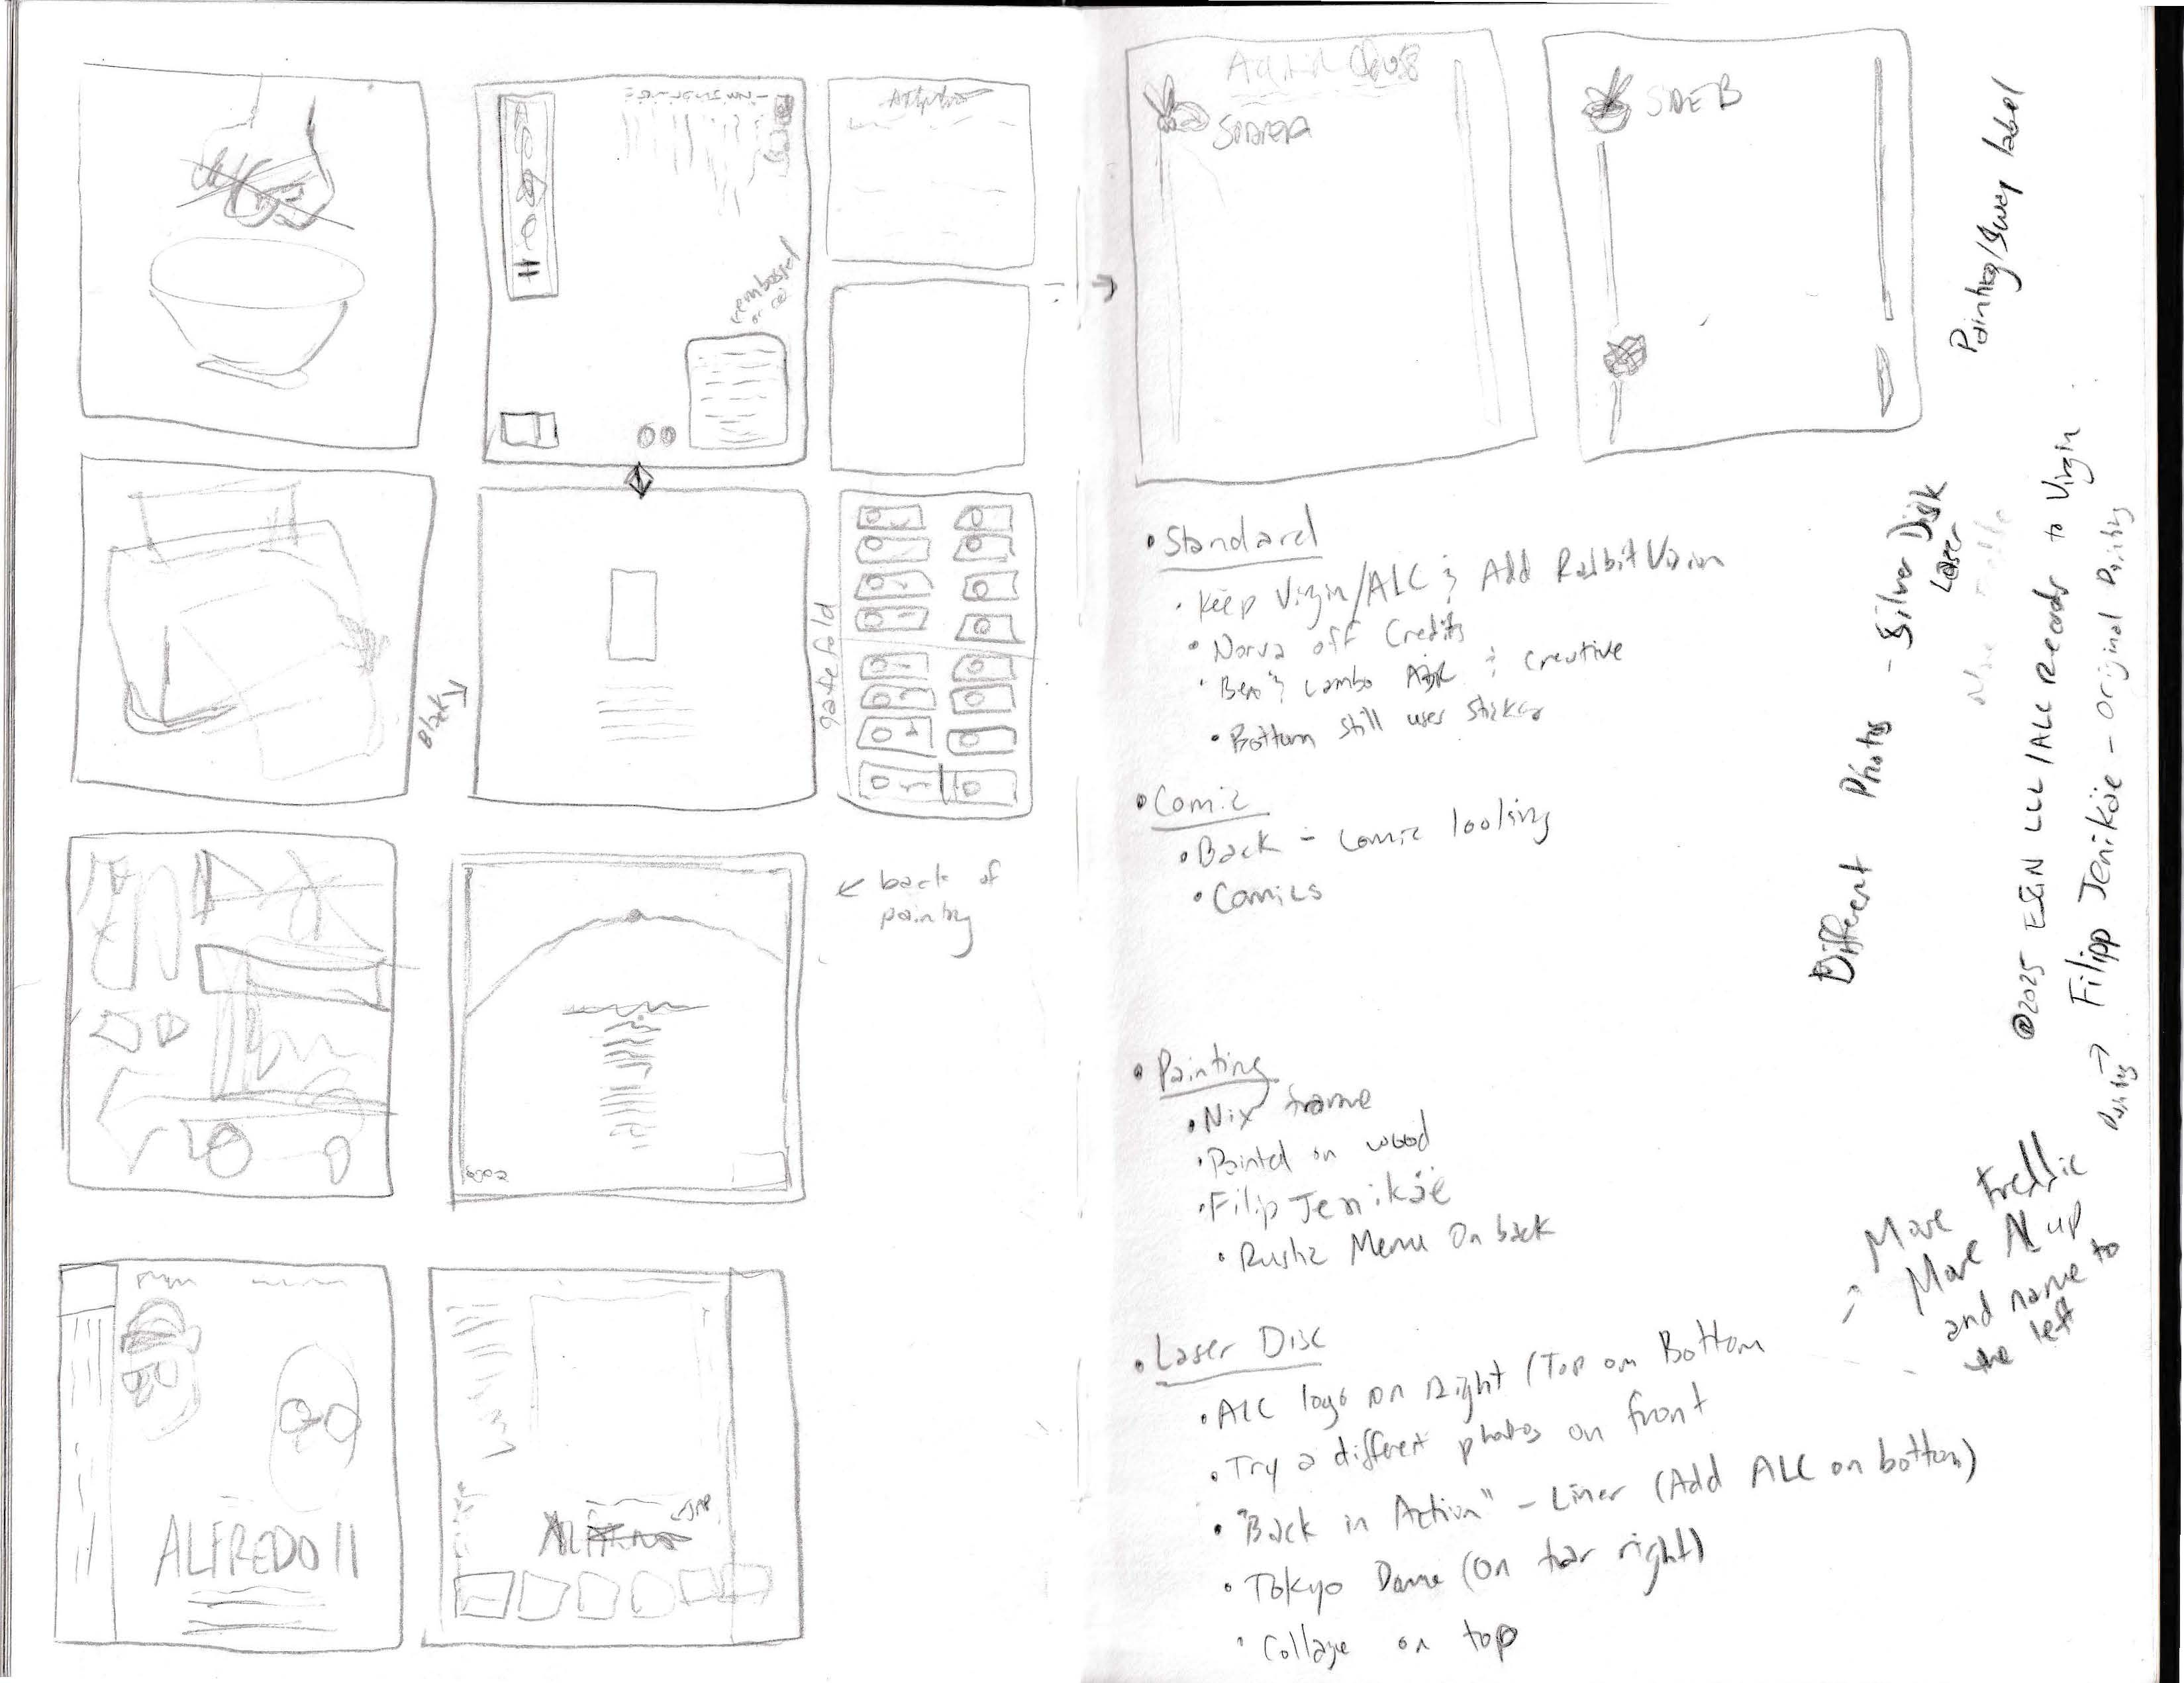 embossed
or
Black
gatefold
back of
painting
ALFREDO II
SIDE A
SIDE B
Painting/Suey label
• Standard
• Keep Virgin/ALC & Add Rabbit Vision
• Norva off Credits
• Ben & Lambo A&R & Creative
• Bottom still uses sticker
• Comic
• Back – comic looking
• Comics
• Painting
• Nix frame
• Painted on wood
• Filip Jenikäe
• Rustic Menu On back
• Laser Disc
• ALC logo on Right (Top on Bottom
• Try a different photos on front
• "Back in Action" – Liner (Add ALC on bottom)
• Tokyo Dome (On far right)
• Collage on top
Different Photos – Silver Disk
Laser
©2025 ESGN LLC/ALC Records to Virgin
Painting → Filipp Jenikäe – Original Painting
– Move Freddie
Move Al up
and name to
the left